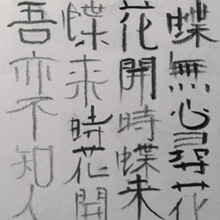 蝶無心尋花
花開時蝶来
蝶来時花開
吾亦不知人